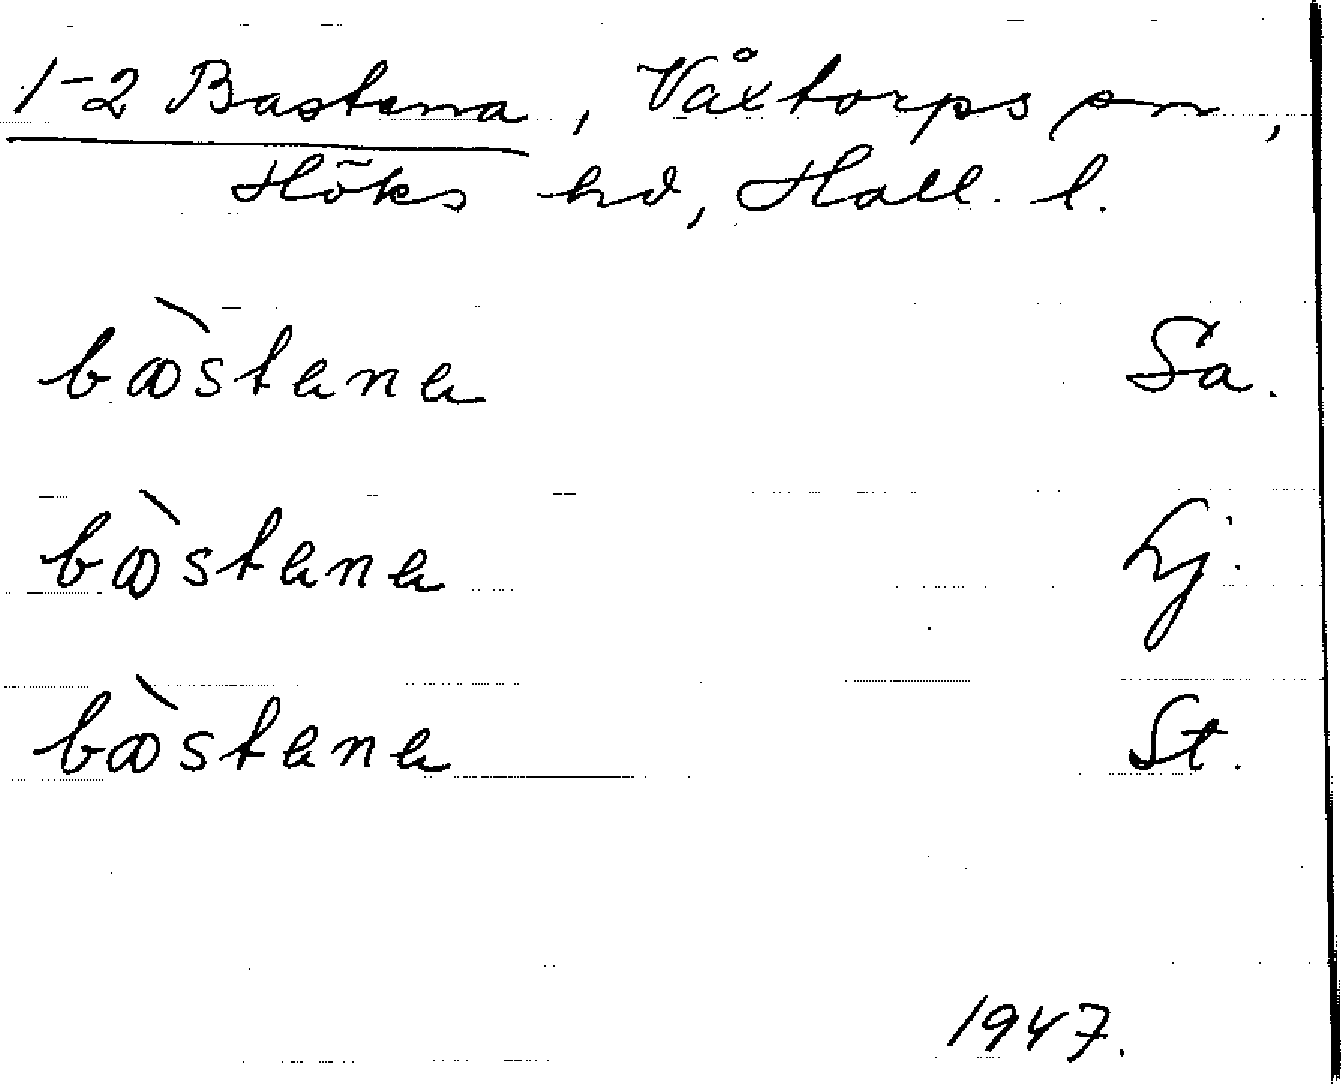 1-2 Bastena, Våxtorps sn,
Höks hd, Hall. l.
bàstena Sa.
bàstena Lj.
bàstena St.
1947.